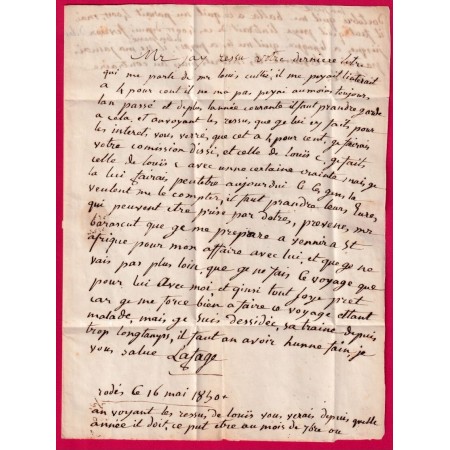 Mr jay ressu votre derniere letre
qui me parle de mr louis il me peyait linterait
a 4 pour cent il ne ma pas peyai au moins toujours
lan passé et deplus lannée courante il faut prandre garde
a cela, et anvoyant les ressus, que ge lui ey faits pour
les interet, vous verré, que cet a 4 pour cent, ge fairais
votre comission dissi, et celle de Louis C, ge fait
celle de louis C avec unne certaine crainte mais, ge
la lui fairais peutetre aujourdui Ce gens la
veulent me le compter, il faut prandre leurs
qui peuvent etre prise par dotres, prevenes, mr
bararscut que ge me prepare a vennir a St
afrique pour mon affaire avec lui, et que ge ne
vais pas plus loin que ge ne fais Ce voyage que
pour lui Avec moi et qinsi tout soye pret
car ge me force bien a faire ce voyage ettant
malade, mais ge suis dessidée, sa traine depuis
trop longtanps, il faut an avoir hunne fain, je
vous salue Lafage
rodés Ce 16 mai 1840
an voyant les ressus, de louïs vous verais depuis quelle
année il doit, ce put etre au mois de 7bre ou